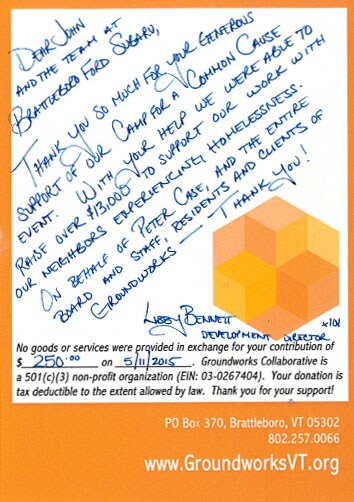 DEAR JOHN
AND THE TEAM AT
BRATTLEBORO FORD SUBARU,
THANK YOU SO MUCH FOR YOUR GENEROUS
SUPPORT OF OUR CAMP FOR A COMMON CAUSE
EVENT. WITH YOUR HELP WE WERE ABLE TO
RAISE OVER $13,000 TO SUPPORT OUR WORK WITH
OUR NEIGHBORS EXPERIENCING HOMELESSNESS.
ON BEHALF OF PETER CASE, AND THE ENTIRE
BOARD AND STAFF, RESIDENTS AND CLIENTS OF
GROUNDWORKS — THANK YOU!
LIBBY BENNETT x101
DEVELOPMENT DIRECTOR
No goods or services were provided in exchange for your contribution of
$ 250.00 on 5/11/2015. Groundworks Collaborative is
a 501(c)(3) non-profit organization (EIN: 03-0267404). Your donation is
tax deductible to the extent allowed by law. Thank you for your support!
PO Box 370, Brattleboro, VT 05302
802.257.0066
www.GroundworksVT.org